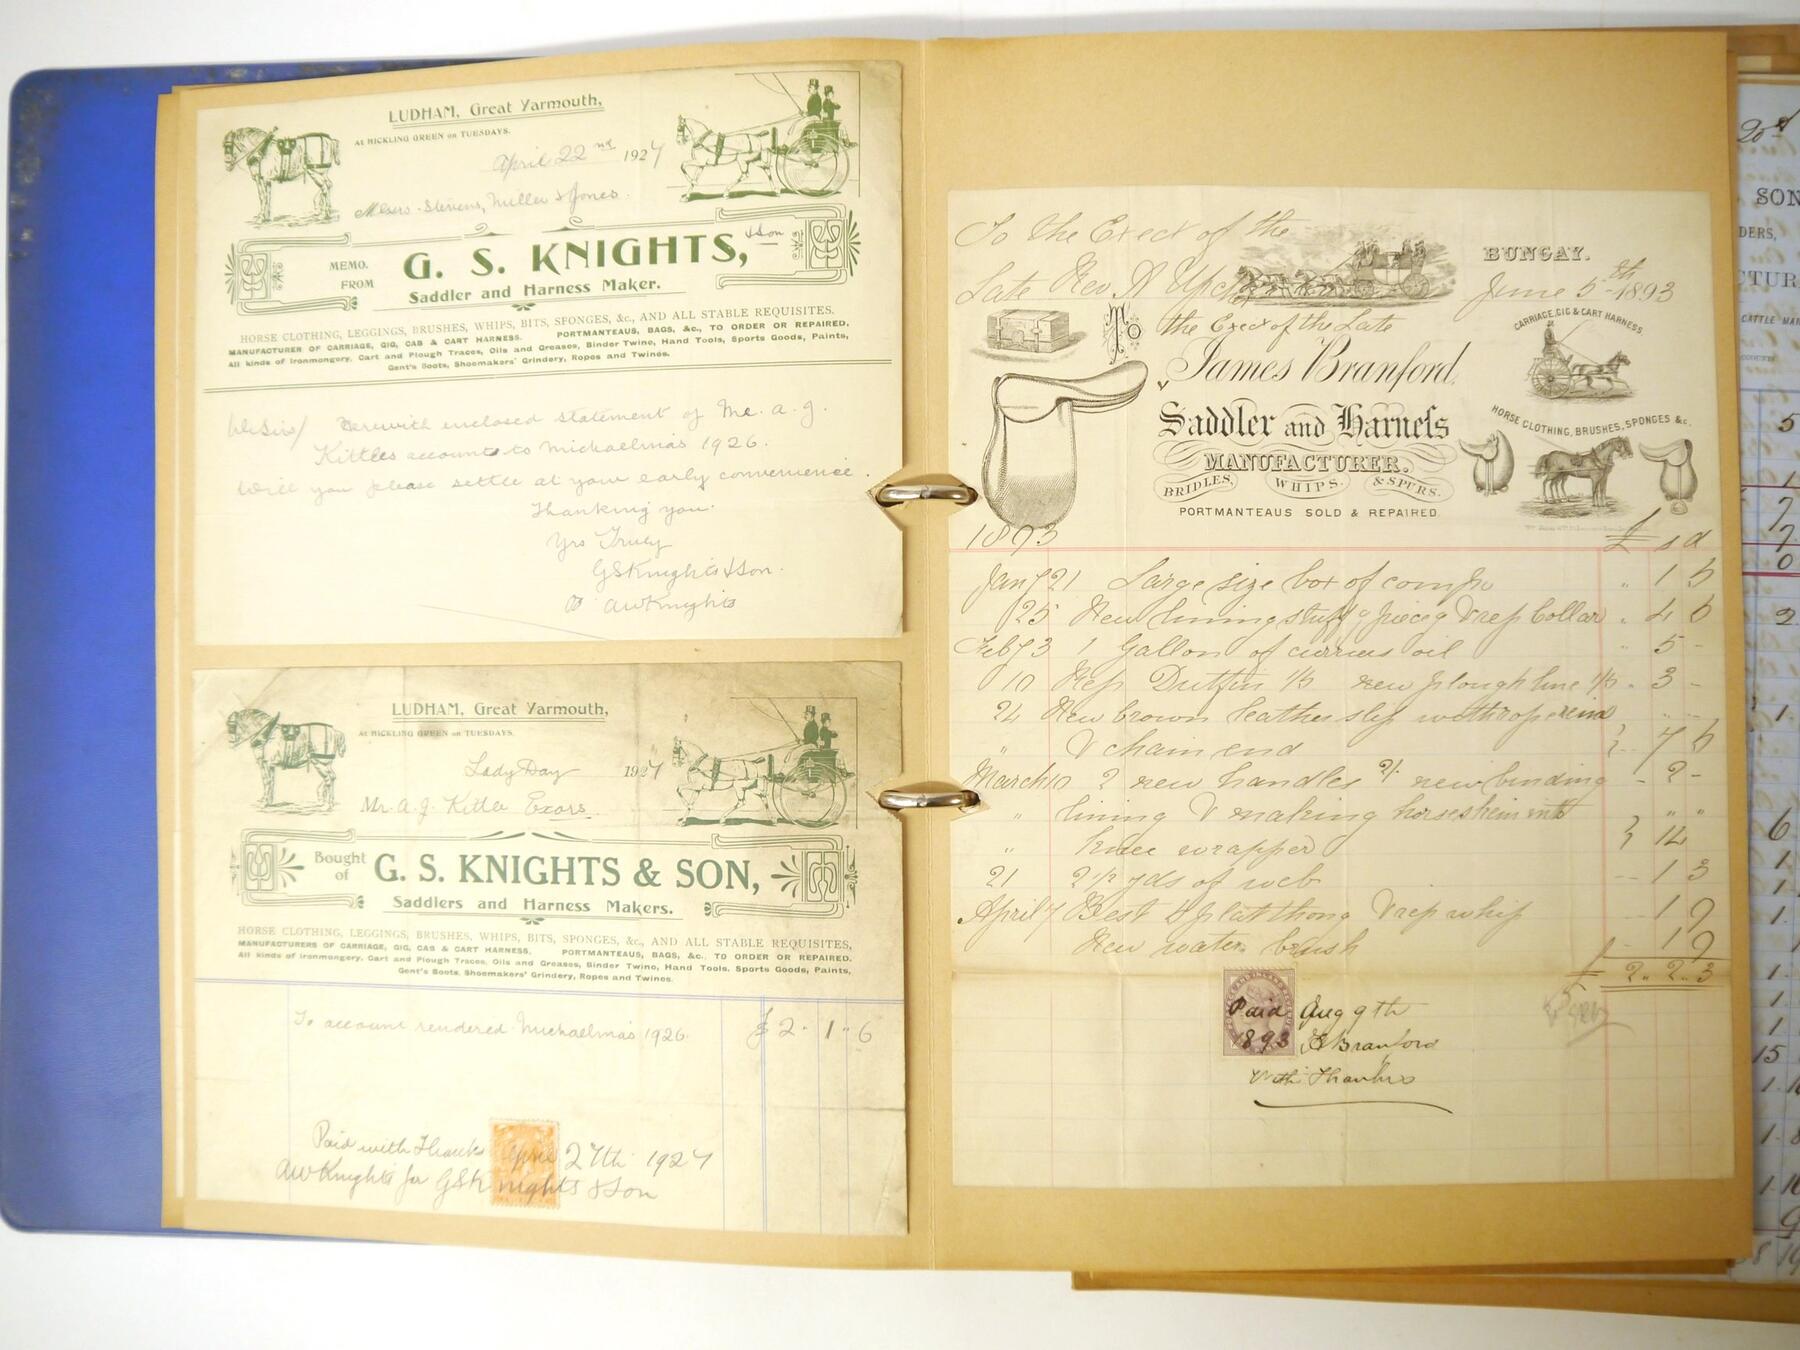 LUDHAM, Great Yarmouth,
At HICKLING GREEN on TUESDAYS.
April 22nd 1927
Messrs Stevens, Miller & Jones.
MEMO. FROM
G. S. KNIGHTS, & Son
Saddler and Harness Maker.
HORSE CLOTHING, LEGGINGS, BRUSHES, WHIPS, BITS, SPONGES, &c., AND ALL STABLE REQUISITES.
MANUFACTURER OF CARRIAGE, GIG, CAB & CART HARNESS. PORTMANTEAUS, BAGS, &c., TO ORDER OR REPAIRED.
All kinds of Ironmongery, Cart and Plough Traces, Oils and Greases, Binder Twine, Hand Tools, Sports Goods, Paints,
Gent's Boots, Shoemakers' Grindery, Ropes and Twines.
Herewith enclosed statement of Mr. A. J.
Kittles account to Michaelmas 1926.
Will you please settle at your early convenience.
Thanking you.
Yrs Truly
GSKnights & Son.
AWKnights
LUDHAM, Great Yarmouth,
At HICKLING GREEN on TUESDAYS.
Lady Day 1927
Mr. A. J. Kittle Exors.
Bought of
G. S. KNIGHTS & SON,
Saddlers and Harness Makers.
HORSE CLOTHING, LEGGINGS, BRUSHES, WHIPS, BITS, SPONGES, &c., AND ALL STABLE REQUISITES,
MANUFACTURERS OF CARRIAGE, GIG, CAB & CART HARNESS. PORTMANTEAUS, BAGS, &c., TO ORDER OR REPAIRED.
All kinds of Ironmongery, Cart and Plough Traces, Oils and Greases, Binder Twine, Hand Tools, Sports Goods, Paints,
Gent's Boots, Shoemakers' Grindery, Ropes and Twines.
To account rendered Michaelmas 1926. £2 - 1 - 6
Paid with Thanks April 27th 1927
AWKnights for GSKnights & Son
To the Exect of the
Late Rev A
BUNGAY.
June 5th 1893
To the Exect of the Late
James Branford,
Saddler and Harness
MANUFACTURER.
BRIDLES, WHIPS. & SPURS.
PORTMANTEAUS SOLD & REPAIRED.
CARRIAGE, GIG & CART HARNESS
HORSE CLOTHING, BRUSHES, SPONGES &c.
1893 £ s d
Jan 21 Large size box of compo " 1 6
25 New lining stuffg piecg & rep Collar " 4 6
Feb 3 1 Gallon of curriers oil " 5 -
10 Rep Dutfin 1/6 new plough line 1/6 " 3 -
24 New brown leather slip with rope rein
" & chain end 7 6
March 10 2 new handles 2/- new binding - 2 -
" lining & making horseshein into
" knee wrapper 14
21 2 1/2 yds of web - 1 3
April 7 Best plat thong & rep whip 1 9
New water brush 1 9
£ 2 " 2 " 3
Paid Aug 9th
1893 Branford
With Thanks
20
SON
DERS,
CTUR
CATTLE